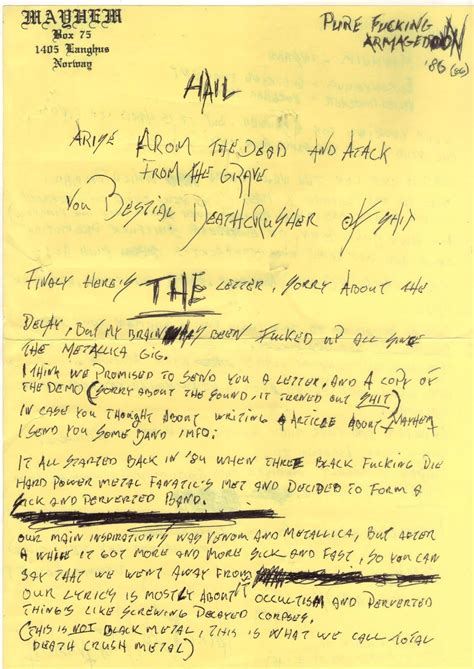 MAYHEM
Box 75
1405 Langhus
Norway
PURE FUCKING
ARMAGEDDON
'86 (86)
HAIL
ARISE FROM THE DEAD AND ATACK
FROM THE GRAVE
YOU BESTIAL DEATHCRUSHER OF SHIT
FINALY HERE'S THE LETTER, SORRY ABOUT THE
DELAY, BUT MY BRAIN HAS BEEN FUCKED UP ALL SINCE
THE METALLICA GIG.
I THINK WE PROMISED TO SEND YOU A LETTER, AND A COPY OF
THE DEMO (SORRY ABOUT THE SOUND, IT TURNED OUT SHIT)
IN CASE YOU THOUGHT ABOUT WRITING A ARTICLE ABOUT MAYHEM
I SEND YOU SOME BAND INFO:
IT ALL STARTED BACK IN '84 WHEN THREE BLACK FUCKING DIE
HARD POWER METAL FANATIC'S MET AND DECIDED TO FORM A
SICK AND PERVERTED BAND.
OUR MAIN INSPIRATION'S WAS VENOM AND METALLICA, BUT AFTER
A WHILE IT GOT MORE AND MORE SICK AND FAST, SO YOU CAN
SAY THAT WE WENT AWAY FROM
OUR LYRICS IS MOSTLY ABOUT OCCULTISM AND PERVERTED
THING'S LIKE SCREWING DECAYED CORPSES.
(THIS IS NOT BLACK METAL, THIS IS WHAT WE CALL TOTAL
DEATH CRUSH METAL)